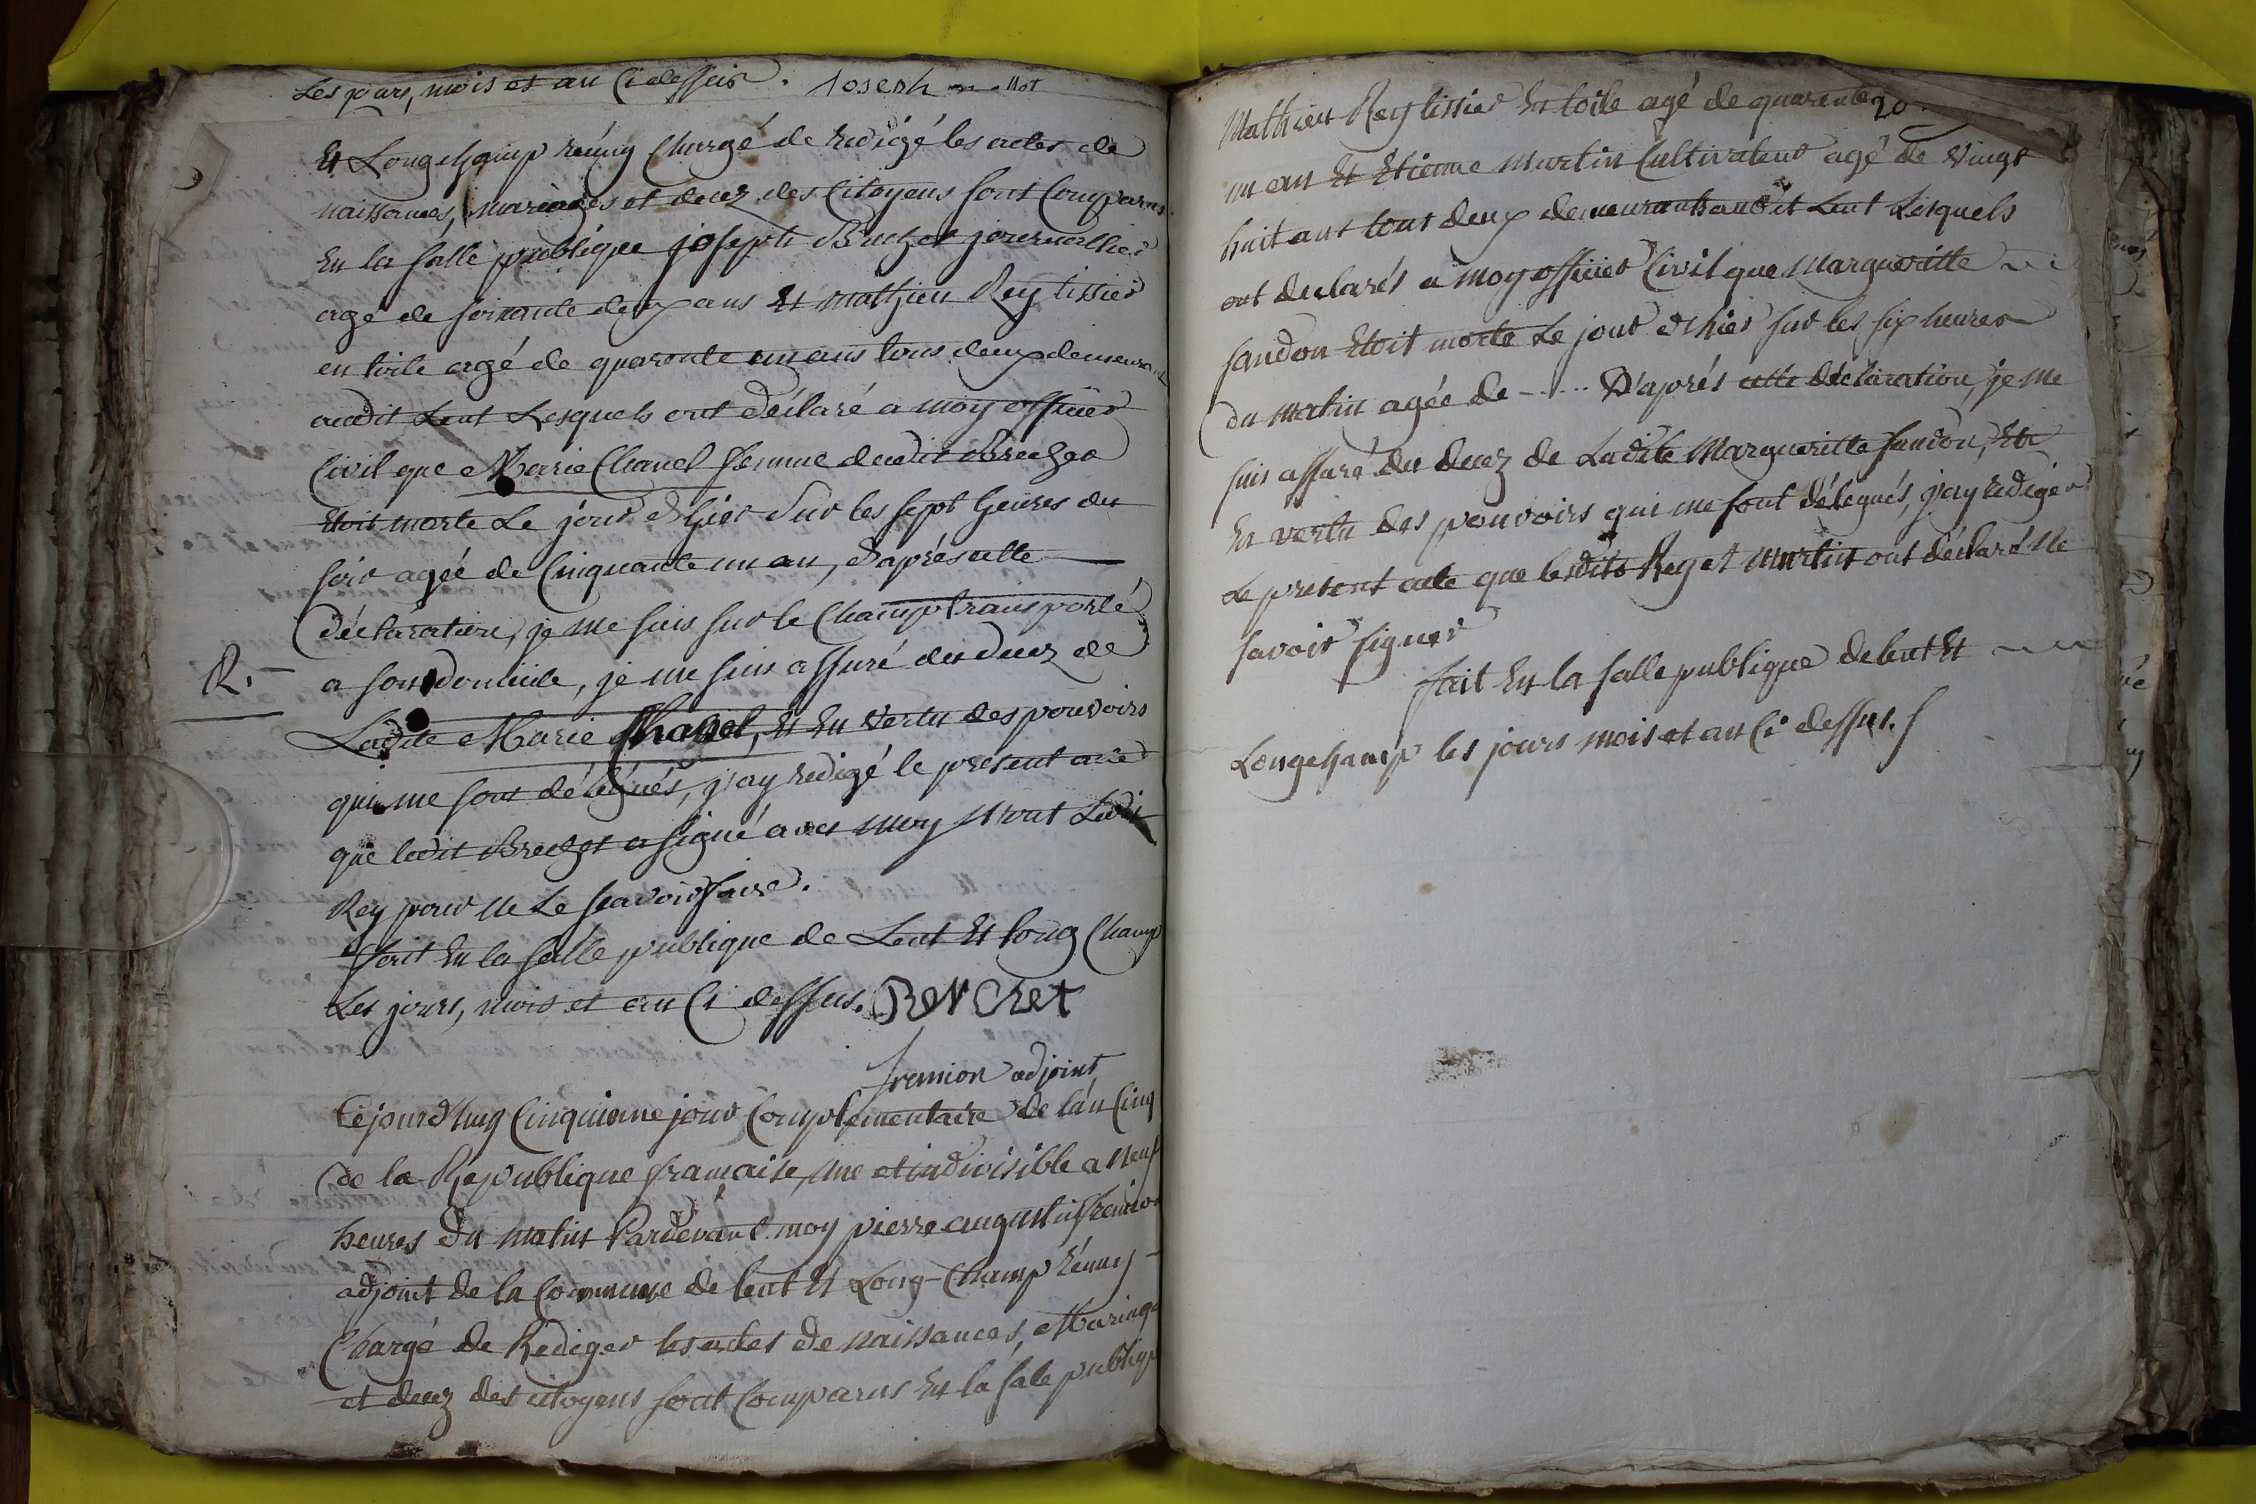 Les jours, mois et an Ci dessus. Joseph
Et Longchamp réuny Chargé de redigé les actes de
naissances, mariages et decez des Citoyens sont Comparus
En la salle publique joseph Brechet journallier
agé de soixante deux ans Et mathieu Rey tissier
en toile agé de quarante un ans tous deux demeurant
audit Lent Lesquels ont déclaré a moy officier
Civil que Marie Chanel femme dudit Brechet
Etoit morte Le jour d'hier sur les sept heures du
soir agée de Cinquante un an, d'après cette
déclaration, je me suis sur le Champ transporté
R. a son domicile, je me suis assuré du decez de
Ladite Marie Chanel, Et En vertu des pouvoirs
qui me sont délégués, j'ay redigé le present acte
que ledit Brechet a signé avec moy Non Ledit
Rey pour Ne Le sçavoir faire.
fait En la salle publique de Lent Et long Champ
Les jours, mois et an Ci dessus. Berchet
fremion adjoint
Cejourd'huy Cinquieme jour Complementaire de l'an Cinq
de la Republique francaise, une et indivisible a Neuf
heures du matin Pardevant moy pierre augustin fremion
adjoint de la Commune de lent Et Long-Champ réuny
Chargé de Rédiger les actes de naissances, Mariage
et decez des citoyens sont Comparus En la sale publique
20
Mathieu Rey tissier En toile agé de quarente
un an Et Etienne Martin Cultivateur agé de vingt
huit ans tous deux demeurants audit Lent Lesquels
ont declarés a moy officier Civil que Margueritte
sandon Etoit morte Le jour d'hier sur les six heures
du matin agée de - - ... D'aprés cette déclaration, je me
suis assuré du decez de Ladite Margueritte sandon, Et
En vertu des pouvoirs qui me sont délegués, j'ay rediger
Le present acte que lesdits Rey et Martin ont déclaré Ne
savoir signer
fait En la salle publique de lent Et
Longchamp les jours mois et an Ci dessus.